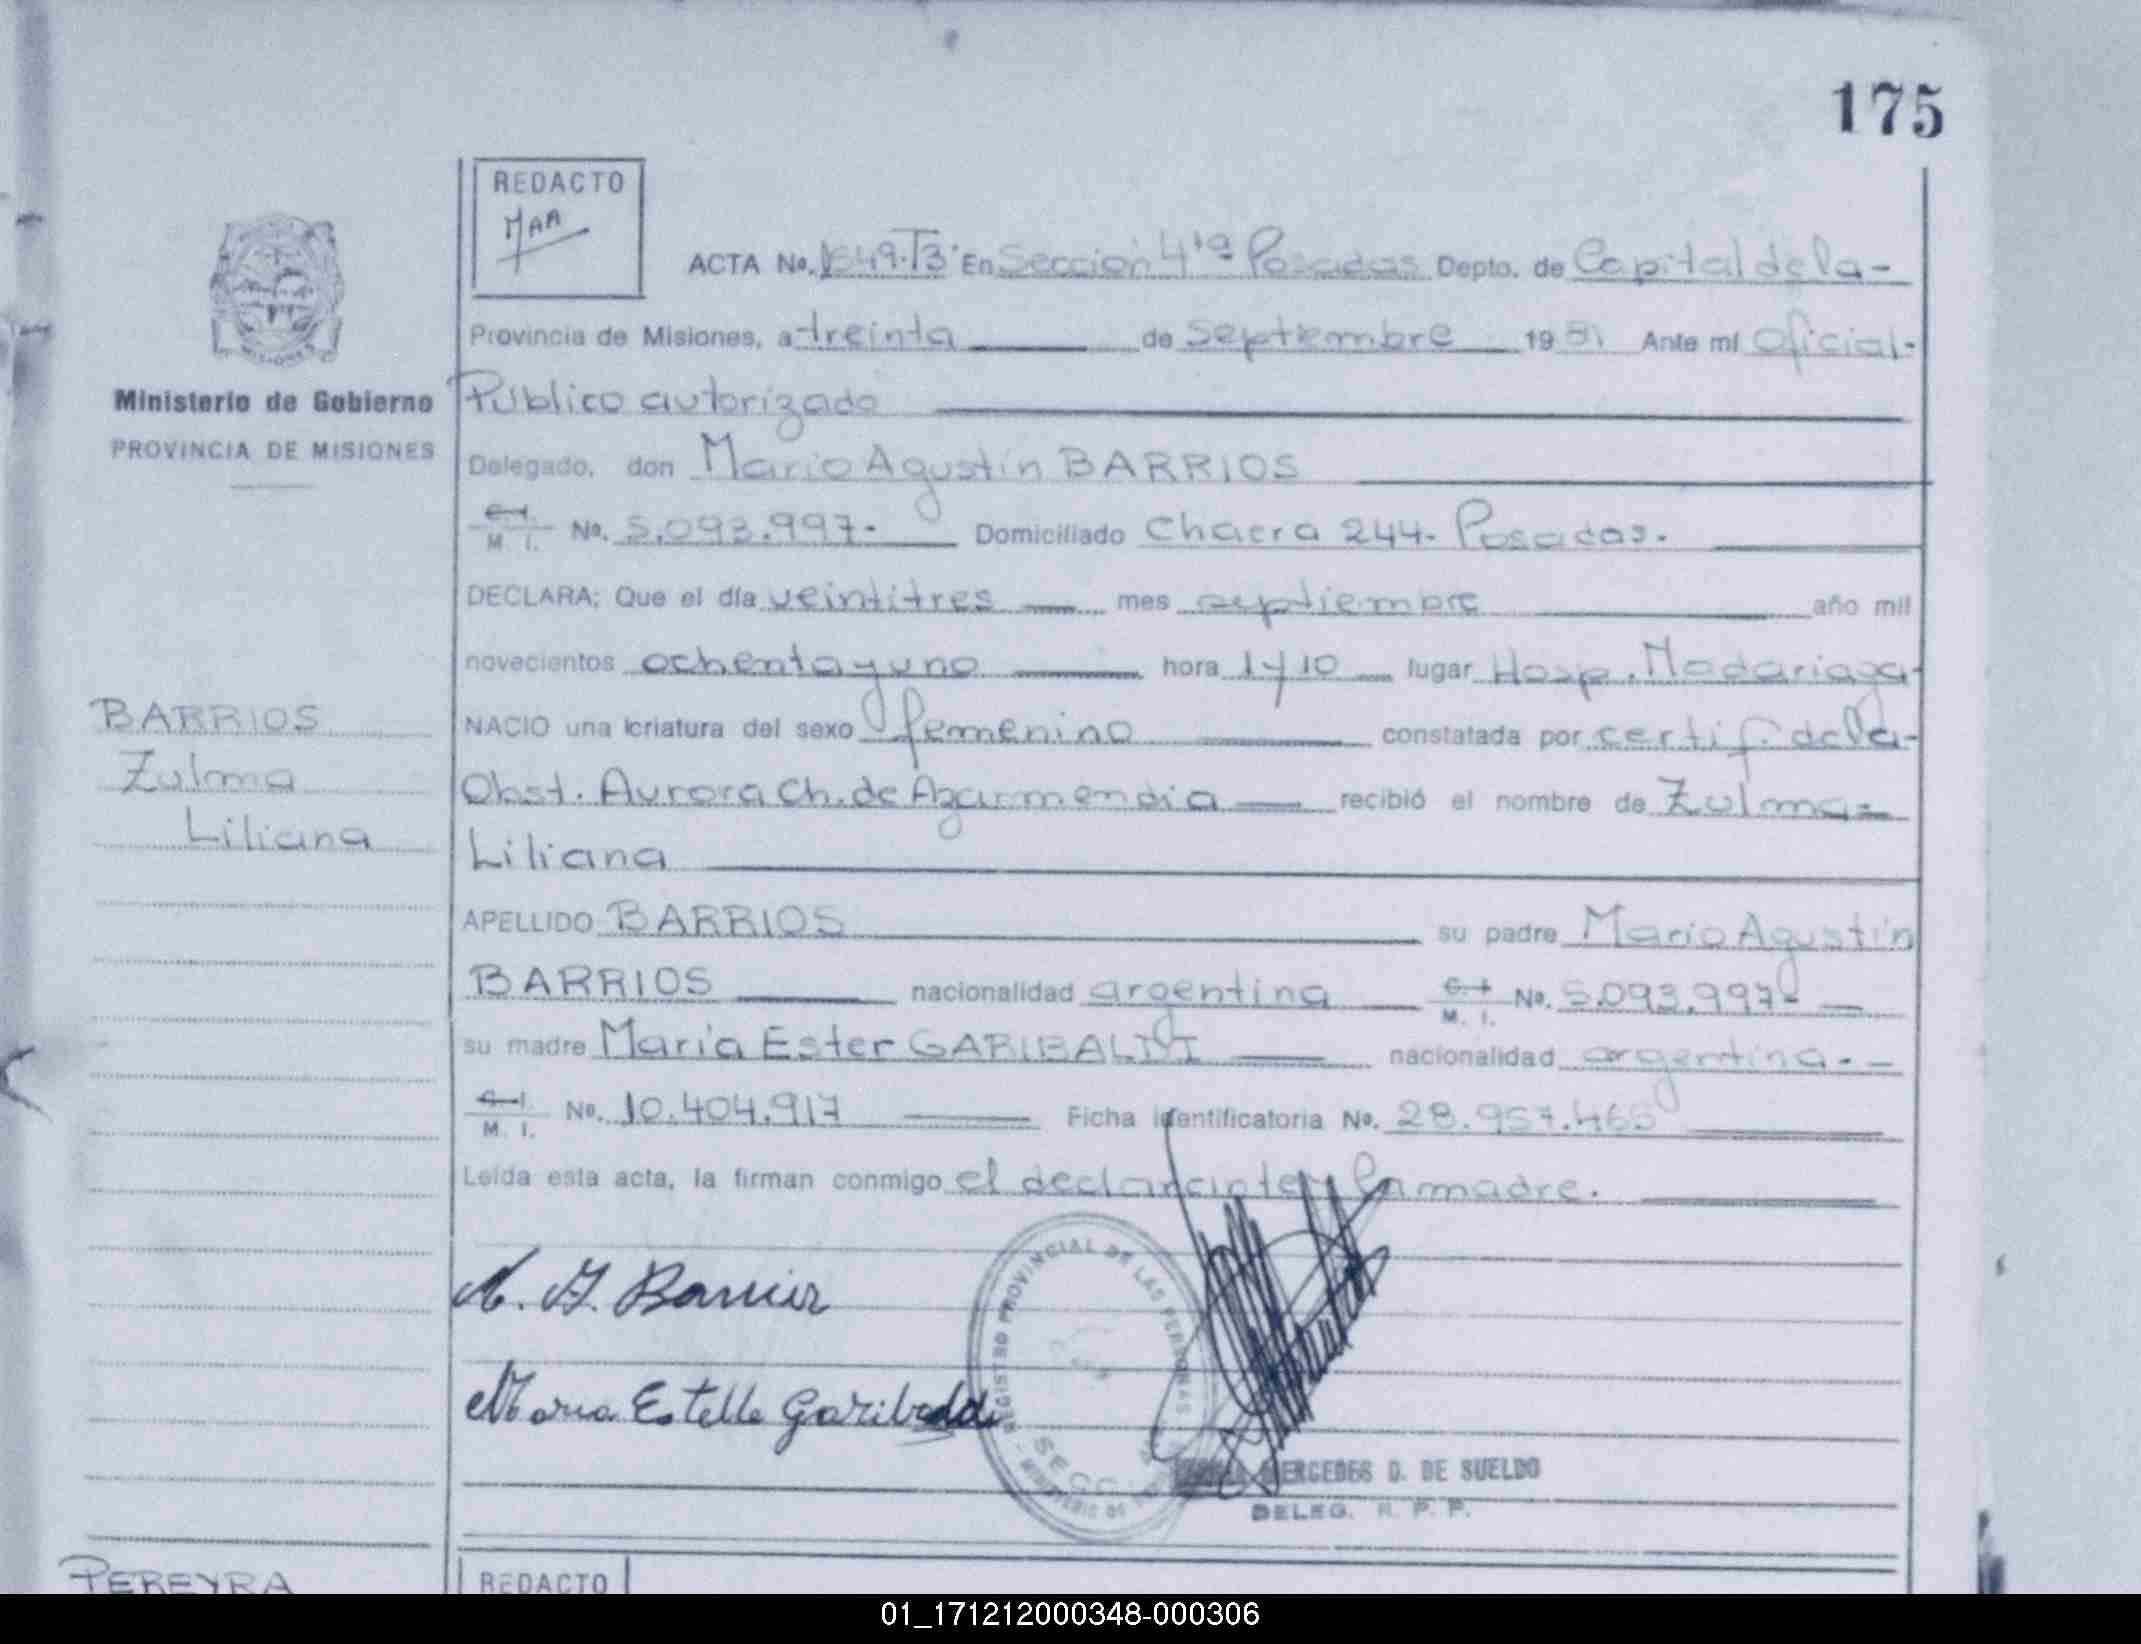 175
REDACTO
MAA
ACTA No. 1649.T3. En Sección 4ta Posadas Depto. de Capital de la-
Provincia de Misiones, a treinta de septiembre 1981 Ante mi Oficial-
Público autorizado
Ministerio de Gobierno
PROVINCIA DE MISIONES
MISIONES
Delegado, don Mario Agustín BARRIOS
C. I. M. I. No. 5.093.997- Domiciliado Chacra 244- Posadas.
DECLARA; Que el día veintitres mes septiembre año mil
novecientos ochenta y uno hora 1 y 10 lugar Hosp. Madariaga-
BARRIOS
Zulma
Liliana
NACIO una criatura del sexo femenino constatada por certif. de la-
Obst. Aurora Ch. de Azarmendia recibió el nombre de Zulma-
Liliana
APELLIDO BARRIOS su padre Mario Agustín
BARRIOS nacionalidad argentina C. I. M. I. No. 5.093.997-
su madre María Ester GARIBALDI nacionalidad argentina.-
C. I. M. I. No. 10.404.917 Ficha identificatoria No. 28.957.465
Leída esta acta, la firman conmigo el declarante y la madre.
M. A. Barrios
Maria Estella Garibaldi
REGISTRO PROVINCIAL DE LAS PERSONAS
SECC
MINISTERIO DE
MERCEDES D. DE SUELDO
DELEG. R. P. P.
PEREYRA
REDACTO
01_171212000348-000306